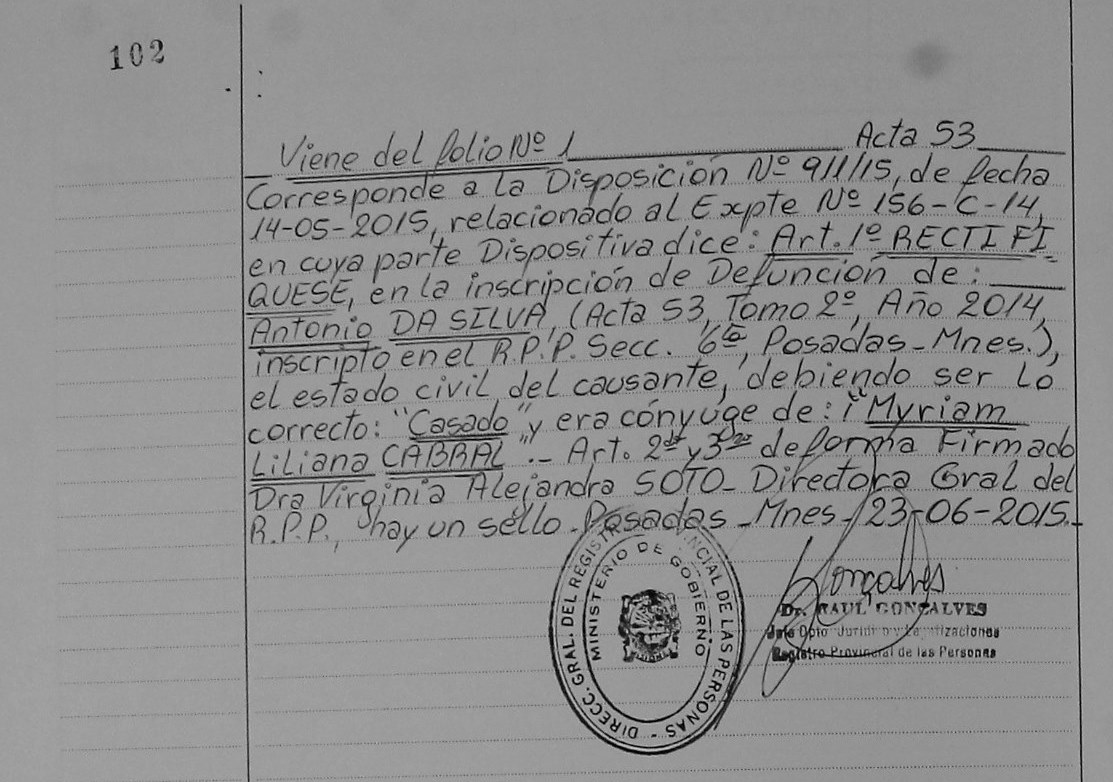 102
Viene del folio Nº 1 Acta 53
Corresponde a la Disposición Nº 911/15, de fecha
14-05-2015, relacionado al Expte Nº 156-C-14,
en cuya parte Dispositiva dice: Art. 1º RECTIFI=
QUESE, en la inscripción de Defunción de:
Antonio DA SILVA, (Acta 53, Tomo 2º, Año 2014,
inscripto en el R.P.P. Secc. 6ta, Posadas-Mnes.),
el estado civil del causante, debiendo ser lo
correcto: "Casado" y era cónyuge de: "Myriam
Liliana CABRAL".- Art. 2do y 3ro de forma Firmado
Dra Virginia Alejandra SOTO- Directora Gral del
R.P.P., hay un sello. Posadas-Mnes. 23-06-2015.-
DIRECC. GRAL. DEL REGISTRO PROVINCIAL DE LAS PERSONAS -
MINISTERIO DE GOBIERNO
Gonçalves
Dr. RAUL GONÇALVES
Jefe Dpto Juridico y Legalizaciones
Registro Provincial de las Personas